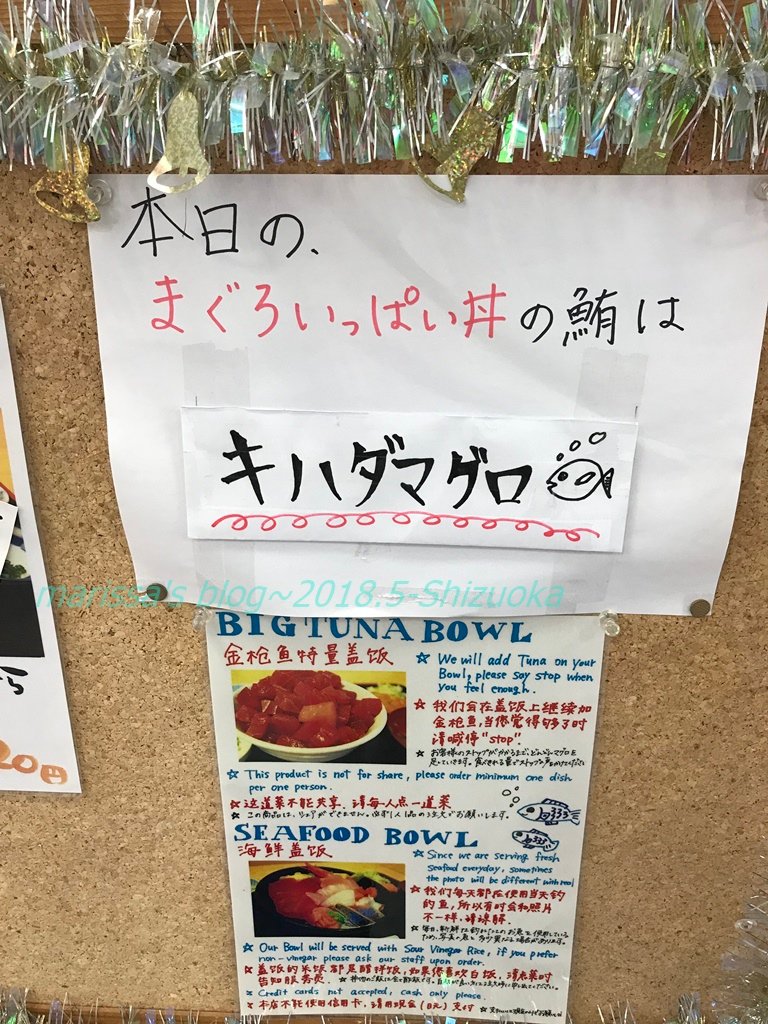 本日の、
まぐろいっぱい丼の鮪は
キハダマグロ
marissa's blog~2018.5-Shizuoka
BIG TUNA BOWL
金枪鱼特量盖饭
☆ We will add Tuna on your
Bowl, please say stop when
you feel enough.
☆ 我们会在盖饭上继续加
金枪鱼,当您觉得够了时
请喊停"stop".
☆ This product is not for share, please order minimum one dish
per one person.
☆这道菜不能共享.请每人点一道菜
SEAFOOD BOWL
海鲜盖饭
☆ Since we are serving fresh
seafood everyday, sometimes
the photo will be different with real
☆我们每天都在使用当天钓
的鱼,所以有时会和照片
不一样.请谅解.
☆ Our Bowl will be served with Sour Vinegar Rice, if you prefer
non-vinegar please ask our staff upon order.
☆ 盖饭的米饭都是醋拌饭,如果您喜欢白饭,请点菜时
告知服务员.
☆ Credit cards not accepted, cash only please.
☆ 本店不能使用信用卡,请用现金(日元)支付
20円